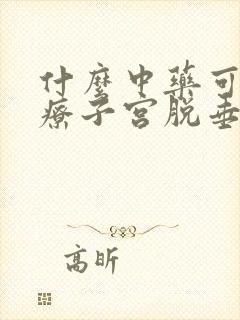 什麼中藥可
療子宮脫垂
高昕